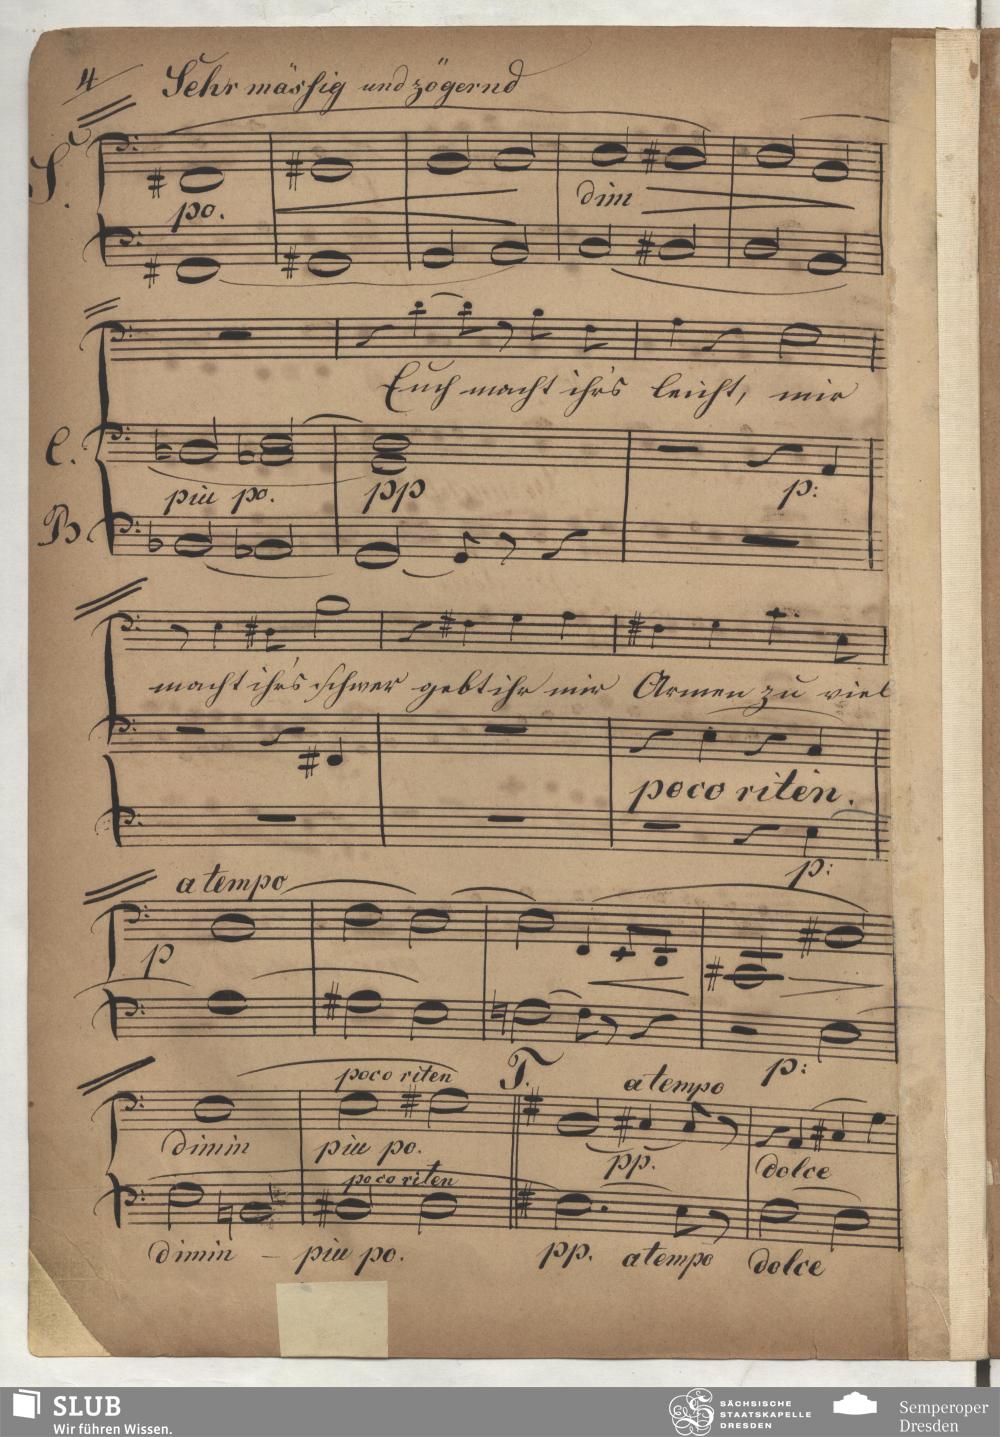 4
Sehr mässig und zögernd
S.
po.
dim
Euch macht ihr's leicht, mir
C.
piu po.
pp
p:
B
macht ihr's schwer gebt ihr mir Armen zu viel
poco riten.
p:
a tempo
p
p:
poco riten
T.
a tempo
dimin piu po.
pp.
dolce
poco riten
dimin – piu po.
pp. a tempo dolce
SLUB
Wir führen Wissen.
SÄCHSISCHE
STAATSKAPELLE
DRESDEN
Semperoper
Dresden